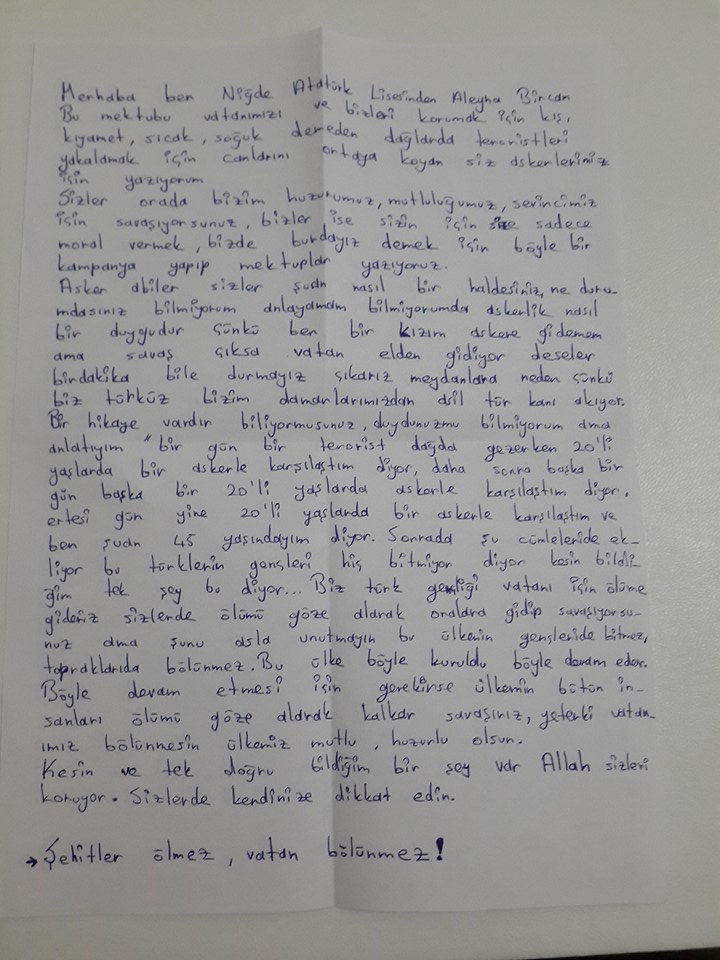 Merhaba ben Niğde Atatürk Lisesinden Aleyna Bircan
Bu mektubu vatanımızı ve bizleri korumak için kış,
kıyamet, sıcak, soğuk demeden dağlarda teroristleri
yakalamak için canlarını ortaya koyan siz askerlerimiz
için yazıyorum
Sizler orada bizim huzurumuz, mutluluğumuz, sevincimiz
için savaşıyorsunuz, bizler ise sizin için size sadece
moral vermek, bizde burdayız demek için böyle bir
kampanya yapıp mektuplar yazıyoruz.
Asker abiler sizler şuan nasıl bir haldesiniz, ne duru-
mdasınız bilmiyorum anlayamam bilmiyorumda askerlik nasıl
bir duygudur çünkü ben bir kızım askere gidemem
ama savaş çıksa vatan elden gidiyor deseler
birdakika bile durmayız çıkarız meydanlara neden çünkü
biz türküz bizim damarlarımızdan asil tür kanı akıyor.
Bir hikaye vardır biliyormusunuz, duydunuzmu bilmiyorum ama
anlatıyım " bir gün bir terorist dağda gezerken 20'li
yaşlarda bir askerle karşılaştım diyor, daha sonra başka bir
gün başka bir 20'li yaşlarda askerle karşılaştım diyor.
ertesi gün yine 20'li yaşlarda bir askerle karşılaştım ve
ben şuan 45 yaşındayım diyor. Sonrada şu cümleleride ek-
liyor bu türklerin gençleri hiç bitmiyor diyor kesin bildi-
ğim tek şey bu diyor... Biz türk gençliği vatanı için ölüme
gideriz sizlerde ölümü göze alarak oralara gidip savaşıyorsu-
nuz ama şunu asla unutmayın bu ülkenin gençleride bitmez,
topraklarıda bölünmez. Bu ülke böyle kuruldu böyle devam eder.
Böyle devam etmesi için gerekirse ülkemin bütün in-
sanları ölümü göze alarak kalkar savaşırız, yeterki vatan
ımız bölünmesin ülkemiz mutlu, huzurlu olsun.
Kesin ve tek doğru bildiğim bir şey var Allah sizleri
koruyor. Sizlerde kendinize dikkat edin.
→ Şehitler ölmez, vatan bölünmez!